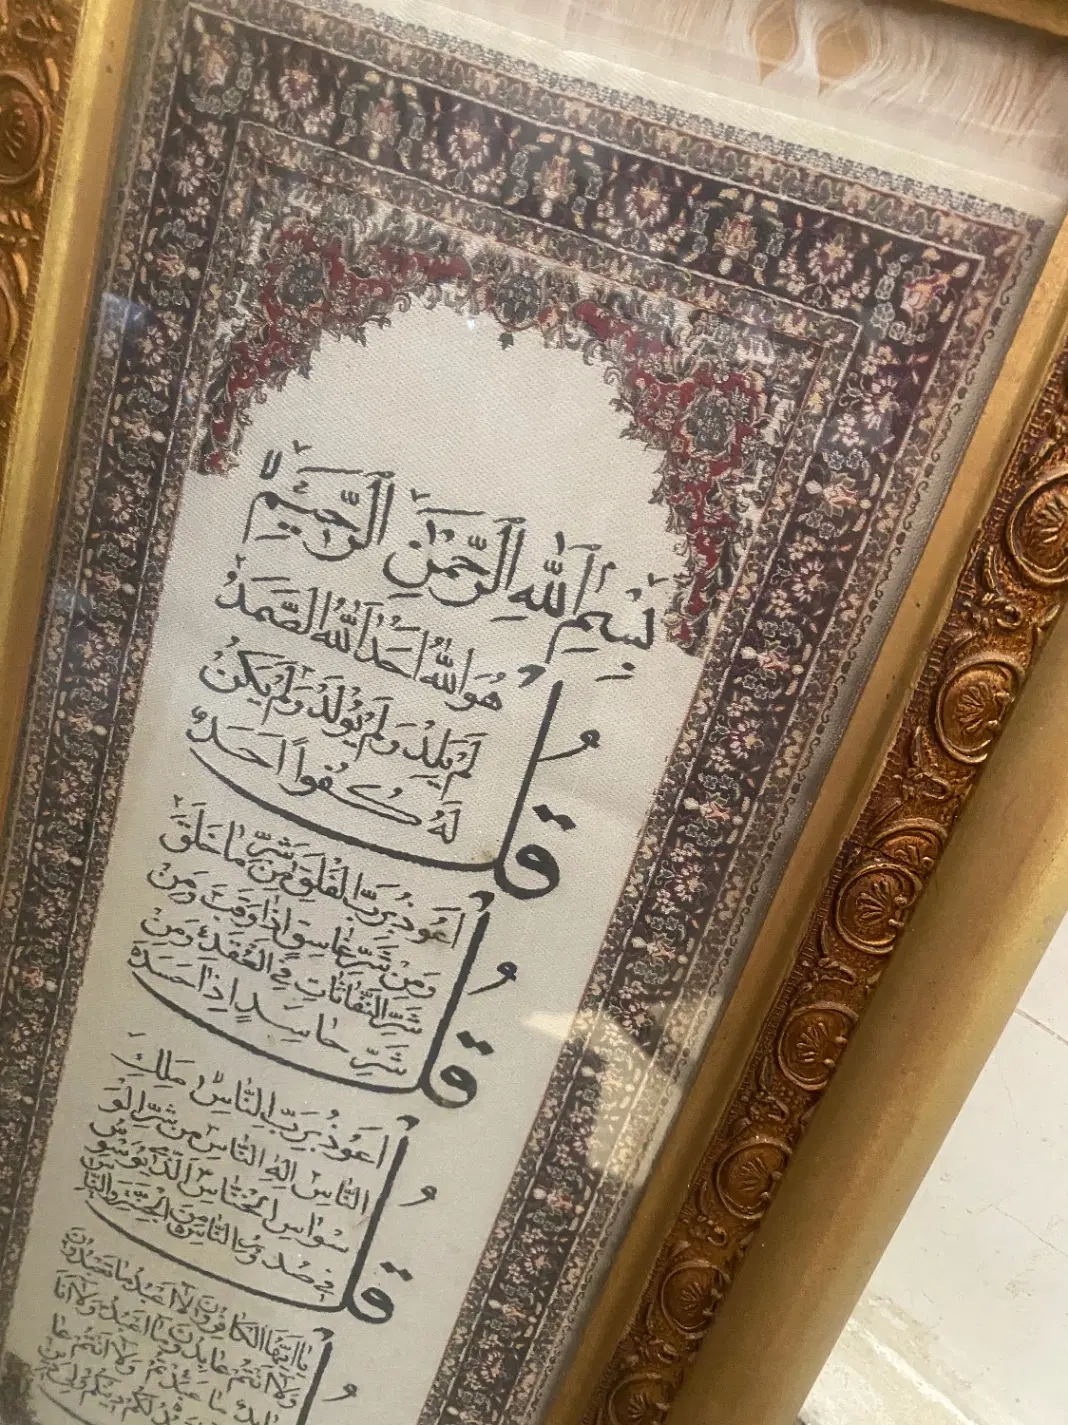 بِسْمِ اللّٰهِ الرَّحْمٰنِ الرَّحِيْمِ
قُلْ
هُوَ اللّٰهُ اَحَدٌ اَللّٰهُ الصَّمَدُ
لَمْ يَلِدْ وَلَمْ يُولَدْ وَلَمْ يَكُنْ
لَهُ كُفُواً اَحَدٌ
قُلْ
اَعُوذُ بِرَبِّ الْفَلَقِ مِنْ شَرِّ مَا خَلَقَ
وَمِنْ شَرِّ غَاسِقٍ اِذَا وَقَبَ وَمِنْ
شَرِّ النَّفَّاثَاتِ فِي الْعُقَدِ وَمِنْ
شَرِّ حَاسِدٍ اِذَا حَسَدَ
قُلْ
اَعُوذُ بِرَبِّ النَّاسِ مَلِكِ
النَّاسِ اِلٰهِ النَّاسِ مِنْ شَرِّ الْوَ
سْوَاسِ الْخَنَّاسِ الَّذِي يُوَسْوِسُ
فِي صُدُورِ النَّاسِ مِنَ الْجِنَّةِ وَالنَّاسِ
يَا اَيُّهَا الْكَافِرُونَ لَا اَعْبُدُ مَا تَعْبُدُونَ
وَلَا اَنْتُمْ عَابِدُونَ مَا اَعْبُدُ وَلَا اَنَا